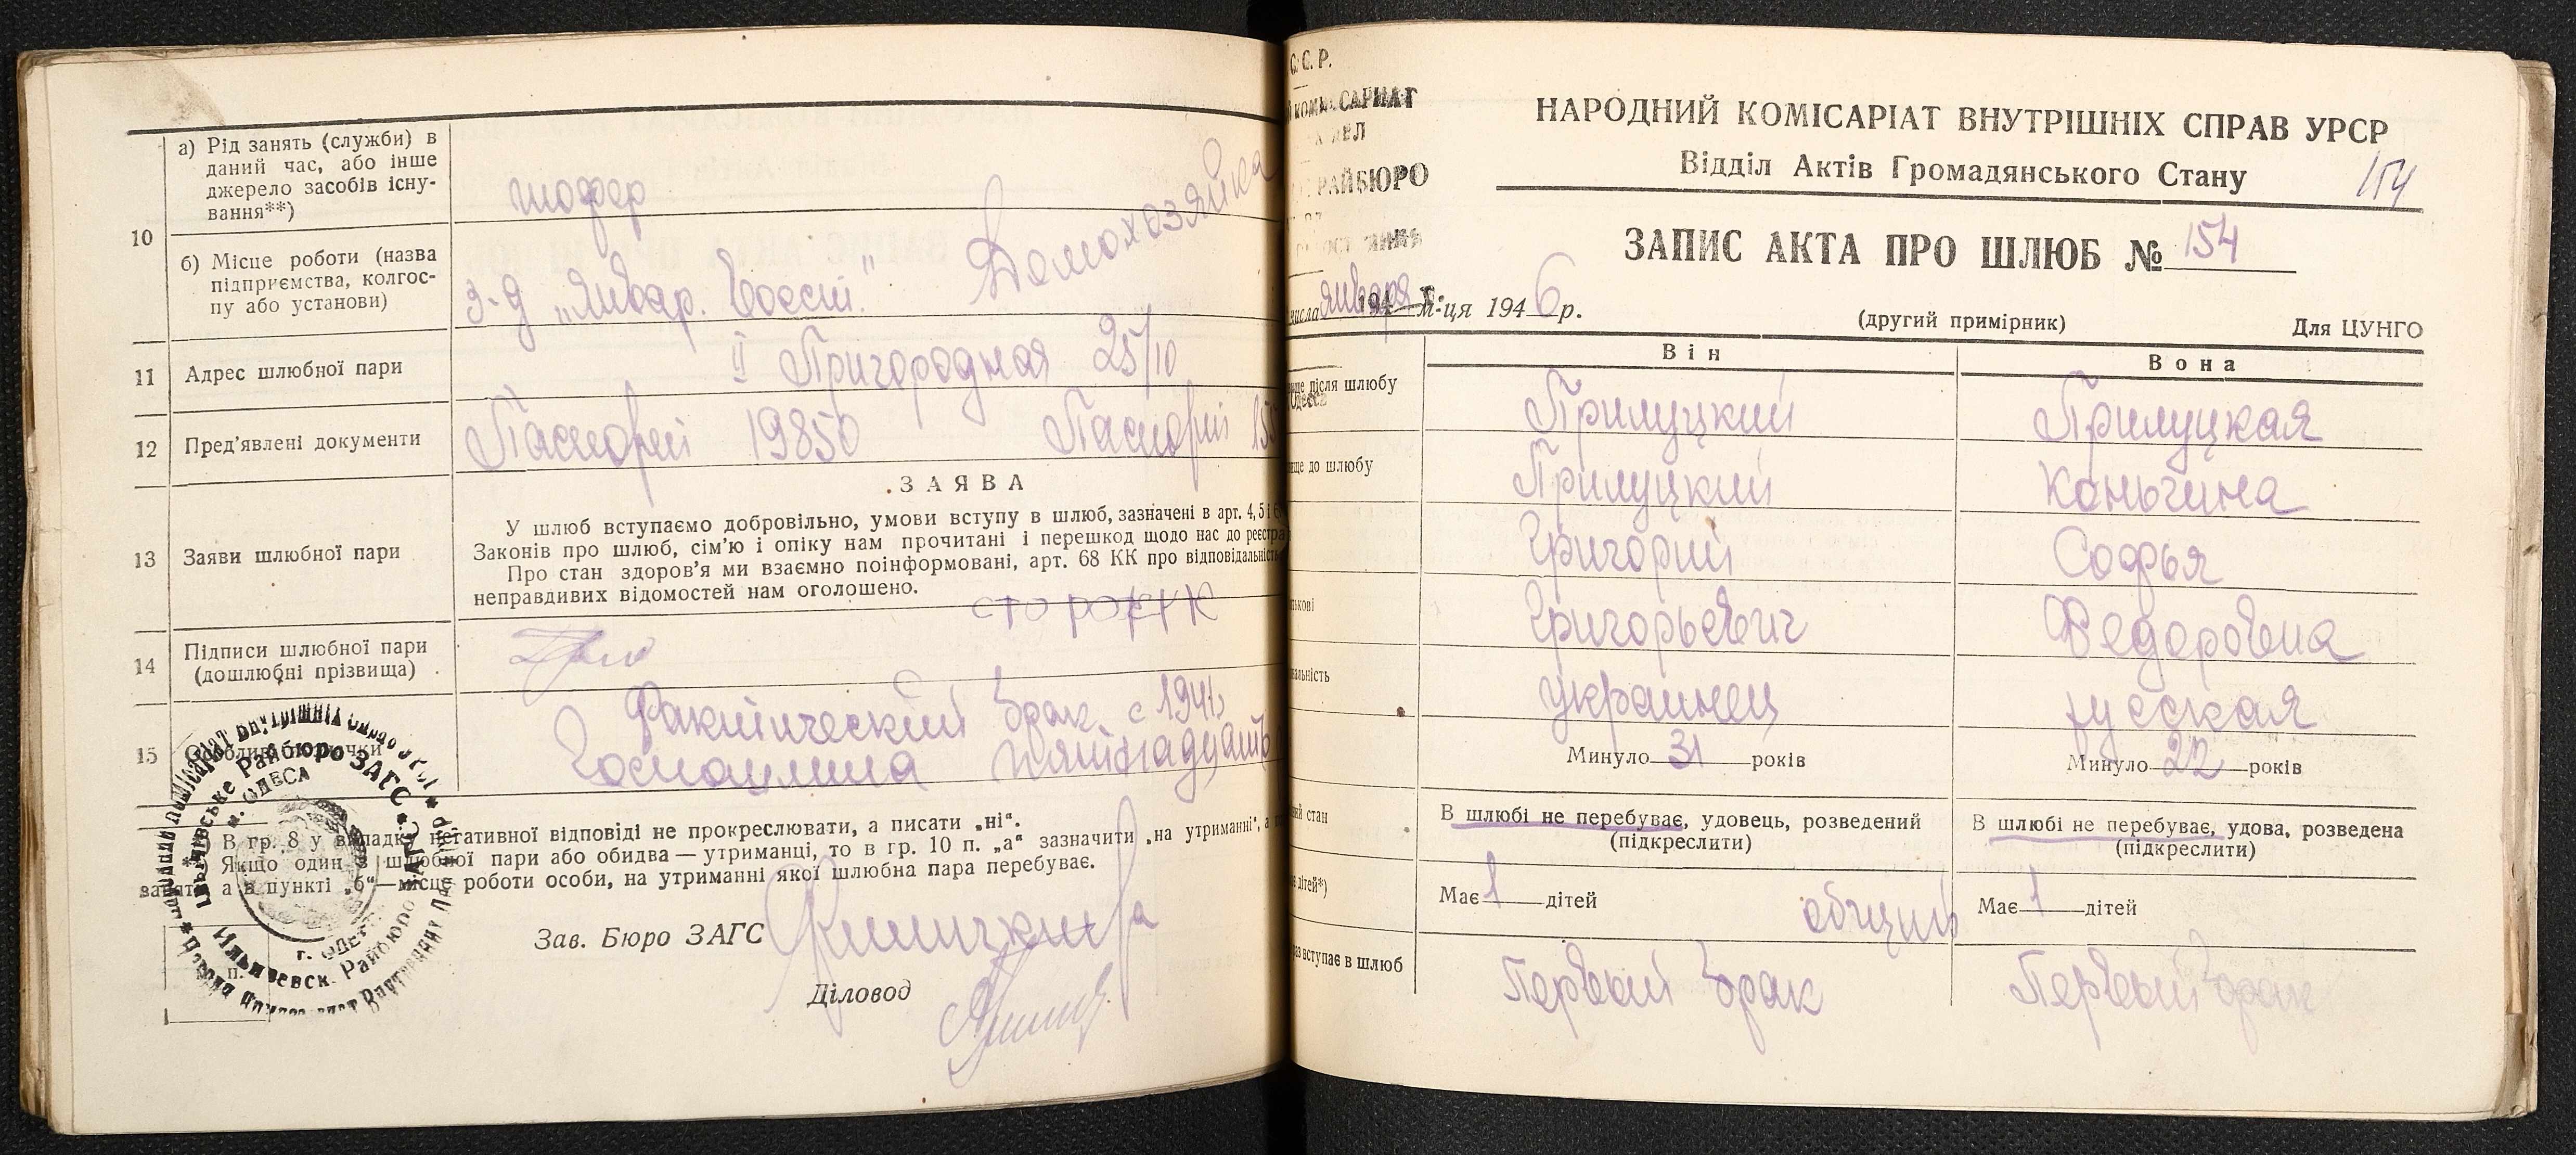 10
а) Рід занять (служби) в
даний час, або інше
джерело засобів існу-
вання**)
шофер
Домохозяйка
б) Місце роботи (назва
підприємства, колгос-
пу або установи)
з-д „Январ. Восст."
11 Адрес шлюбної пари
II Пригородная 25/10
12 Пред'явлені документи
Паспорт 19850 Паспорт 155
13 Заяви шлюбної пари
ЗАЯВА
У шлюб вступаємо добровільно, умови вступу в шлюб, зазначені в арт. 4, 5 і 6
Законів про шлюб, сім'ю і опіку нам прочитані і перешкод щодо нас до реєстра
Про стан здоров'я ми взаємно поінформовані, арт. 68 КК про відповідальність
неправдивих відомостей нам оголошено.
14 Підписи шлюбної пари
(дошлюбні прізвища)
15 Особливі позначки
Фактический брак с 1941
Госпошлина пятнадцать
В гр. 8 у випадку негативної відповіді не прокреслювати, а писати „ні".
Якщо один з шлюбної пари або обидва — утриманці, то в гр. 10 п. „а" зазначити „на утриманні", а
заняття а в пункті „б"—місце роботи особи, на утриманні якої шлюбна пара перебуває.
Райбюро ЗАГС
м. ОДЕСА
Зав. Бюро ЗАГС
Діловод
п.
С. С. Р.
КОМИССАРИАТ
РАЙБЮРО
НАРОДНИЙ КОМІСАРІАТ ВНУТРІШНІХ СПРАВ УРСР
Відділ Актів Громадянського Стану
154
ЗАПИС АКТА ПРО ШЛЮБ № 154
числа января м-ця 1946 р.
(другий примірник)
Для ЦУНГО
Він
Вона
ще після шлюбу
Одесса
Прилуцкий
Прилуцкая
ще до шлюбу
Прилуцкий
Коньгина
Григорий
Софья
ькові
Григорьевич
Федоровна
альність
украинец
русская
Минуло 31 років
Минуло 22 років
ний стан
В шлюбі не перебуває, удовець, розведений
(підкреслити)
В шлюбі не перебуває, удова, розведена
(підкреслити)
дітей*)
Має 1 дітей
общий
Має 1 дітей
раз вступає в шлюб
Первый брак
Первый брак